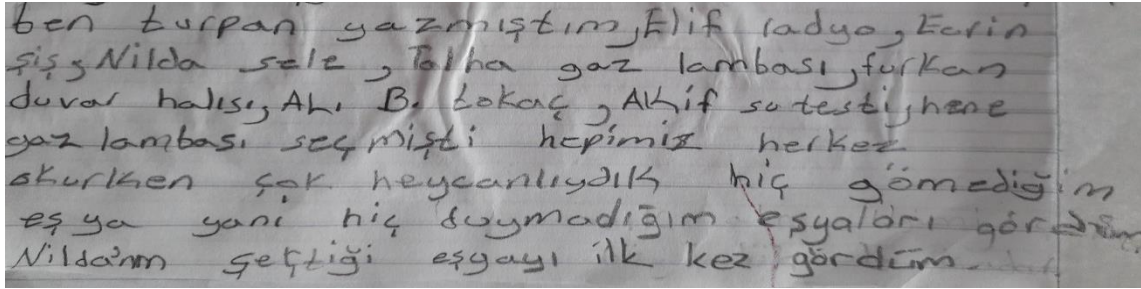 ben turpan yazmıştım, Elif radyo, Ecrin
şiş, Nilda sele, Talha gaz lambası, furkan
duvar halısı, Ali B. tokaç, Akif su testi,
gaz lambası seçmişti hepimiz herkez
okurken çok heycanlıydık hiç gömediğim
eşya yani hiç duymadığım eşyaları gördüm
Nilda'nın seçtiği eşyayı ilk kez gördüm.